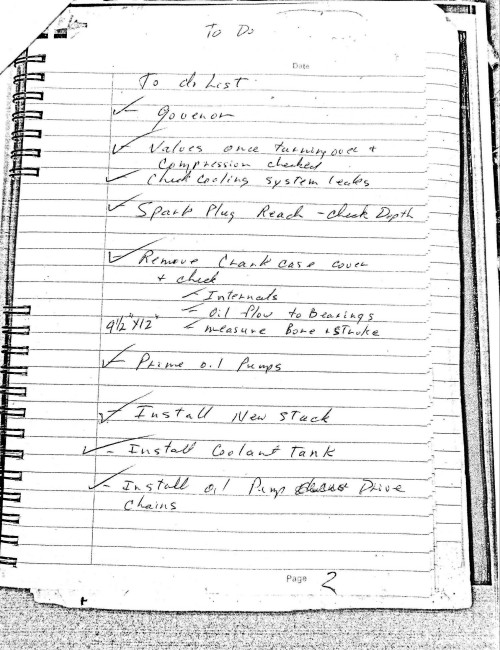 To Do
Date
To do List
✓- Govenor
✓- Valves once turning over +
Compression checked
✓- Check Cooling system leaks
✓- Spark Plug Reach - check Depth
✓- Remove Crank case cover
+ check
✓- Internals
✓- oil flow to Bearings
9 1/2" x 12" ✓- measure Bore + Stroke
✓- Prime oil Pumps
✓- Install New Stack
✓- Install Coolant Tank
✓- Install oil Pump Drive
Chains
Page 2